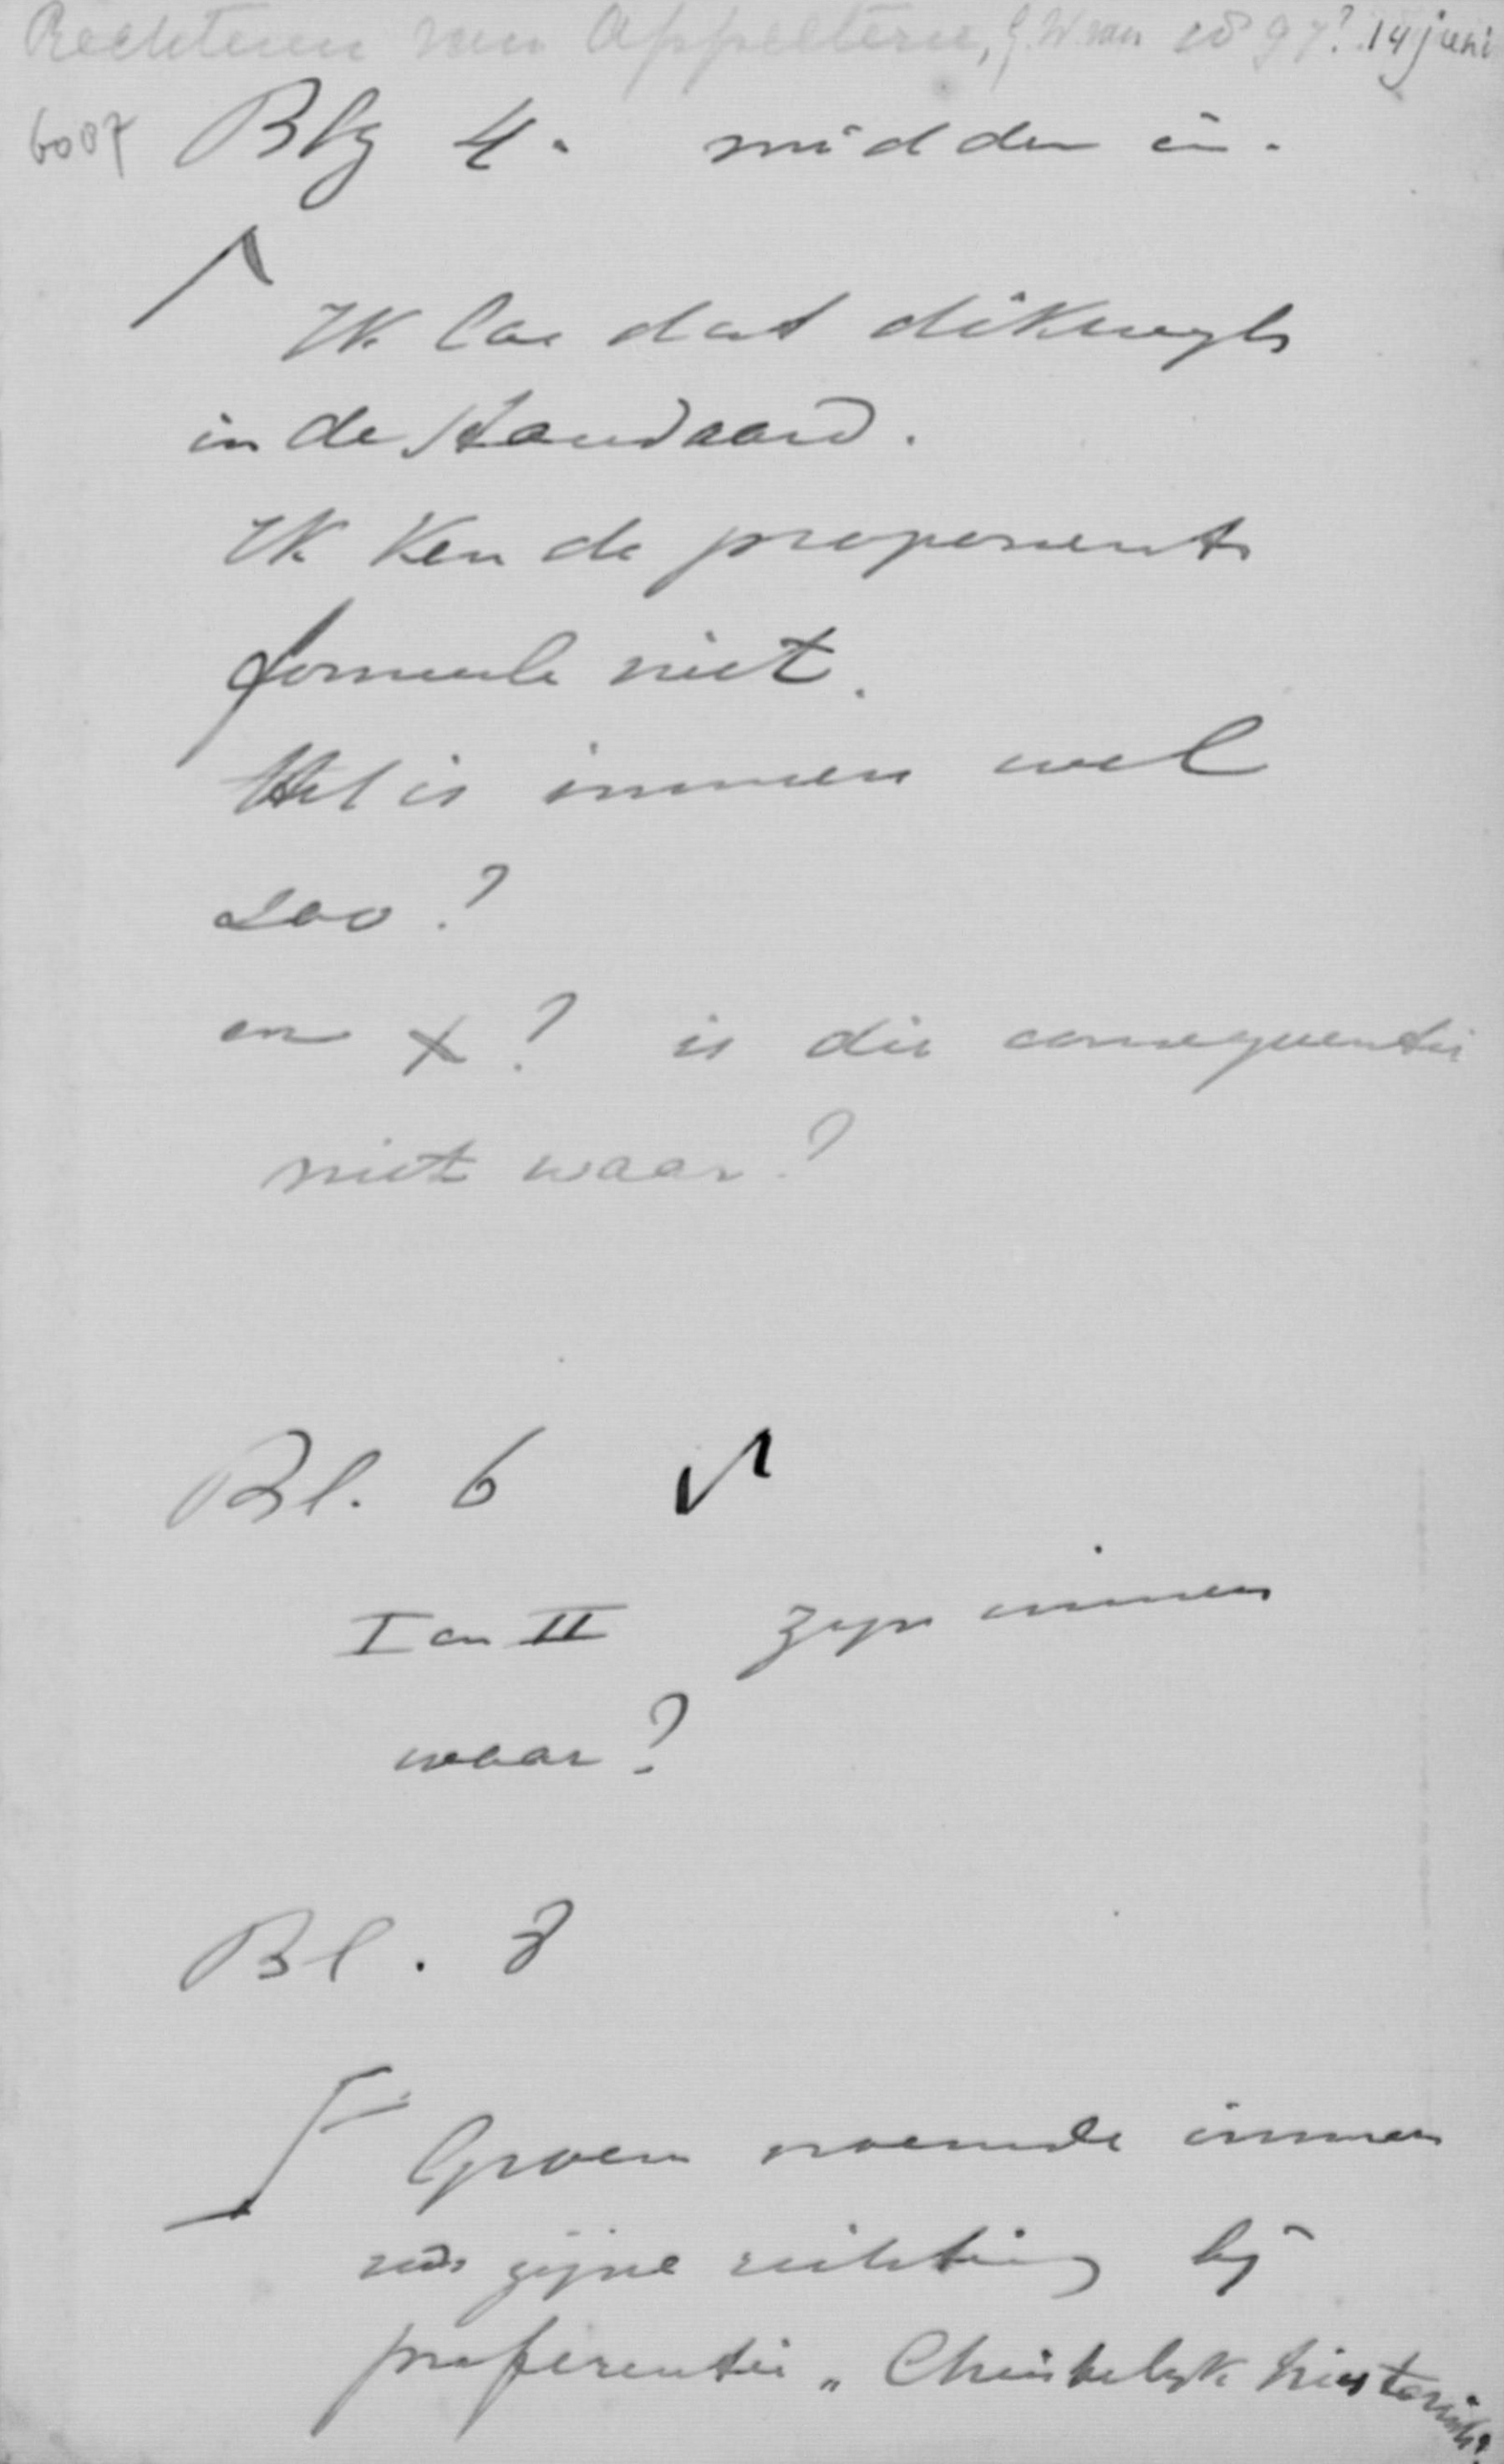 Rechteren van Appeltern, J. W. van 1897? 14 juni
6007 Blg 4. midden in.
Ik las dat dikwyls
in de Standaard.
Ik Ken de proponents
formule niet.
Het is immers wel
zoo?
en X? is die consequentie
niet waar?
Bl. 6
I en II zyn immers
waar?
Bl. 8
Groen noemde immers
zijne richting bij
preferentie „Christelyk historisch?